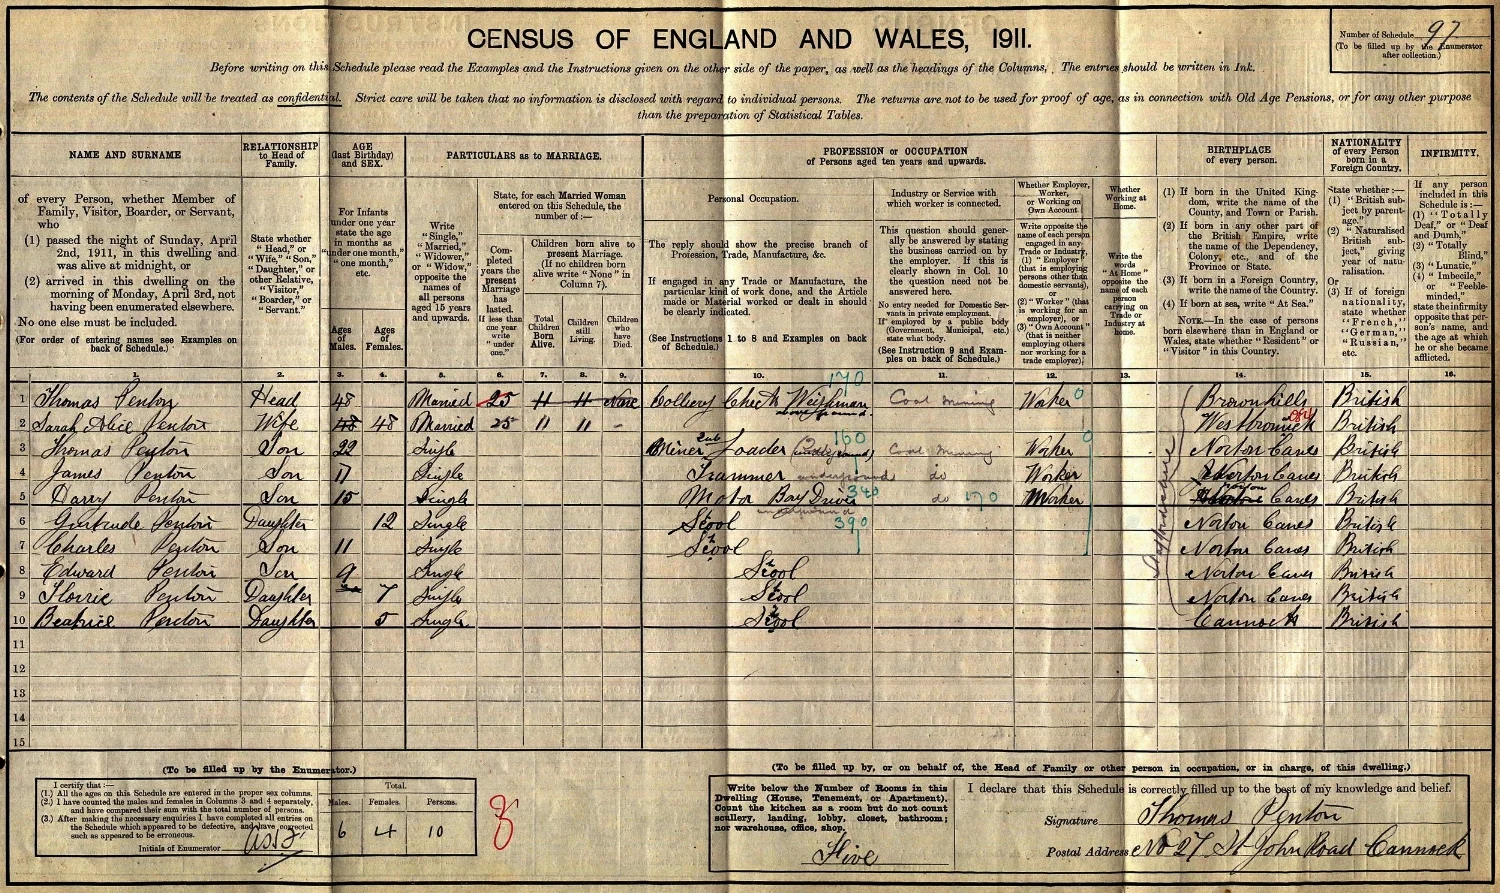 CENSUS OF ENGLAND AND WALES, 1911.
Number of Schedule 97
(To be filled up by the Enumerator
after collection.)
Before writing on this Schedule please read the Examples and the Instructions given on the other side of the paper, as well as the headings of the Columns. The entries should be written in Ink.
The contents of the Schedule will be treated as confidential. Strict care will be taken that no information is disclosed with regard to individual persons. The returns are not to be used for proof of age, as in connection with Old Age Pensions, or for any other purpose
than the preparation of Statistical Tables.
NAME AND SURNAME
RELATIONSHIP
to Head of
Family.
AGE
(last Birthday)
and SEX.
PARTICULARS as to MARRIAGE.
PROFESSION or OCCUPATION
of Persons aged ten years and upwards.
BIRTHPLACE
of every person.
NATIONALITY
of every Person
born in a
Foreign Country.
INFIRMITY.
of every Person, whether Member of
Family, Visitor, Boarder, or Servant,
who
(1) passed the night of Sunday, April
2nd, 1911, in this dwelling and
was alive at midnight, or
(2) arrived in this dwelling on the
morning of Monday, April 3rd, not
having been enumerated elsewhere.
No one else must be included.
(For order of entering names see Examples on
back of Schedule.)
State whether
"Head," or
"Wife," "Son,"
"Daughter," or
other Relative,
"Visitor,"
"Boarder," or
"Servant."
For Infants
under one year
state the age
in months as
"under one month,"
"one month,"
etc.
Ages
of
Males.
Ages
of
Females.
Write
"Single,"
"Married,"
"Widower,"
or "Widow,"
opposite the
names of
all persons
aged 15 years
and upwards.
State, for each Married Woman
entered on this Schedule, the
number of:—
Com-
pleted
years the
present
Marriage
has
lasted.
If less than
one year
write
"under
one."
Children born alive to
present Marriage.
(If no children
born alive
write "None" in
Column 7).
Total
Children
Born
Alive.
Children
still
Living.
Children
who
have
Died.
Personal Occupation.
The reply should show the precise branch of
Profession, Trade, Manufacture, &c.
If engaged in any Trade or Manufacture, the
particular kind of work done, and the Article
made or Material worked or dealt in should
be clearly indicated.
(See Instructions 1 to 8 and Examples on back
of Schedule.)
Industry or Service with
which worker is connected.
This question should gener-
ally be answered by stating
the business carried on by
the employer. If this is
clearly shown in Col. 10
the question need not be
answered here.
No entry needed for Domestic Ser-
vants in private employment.
If employed by a public body
(Government, Municipal, etc.)
state what body.
(See Instruction 9 and Exam-
ples on back of Schedule.)
Whether Employer,
Worker,
or Working on
Own Account
Write opposite the
name of each person
engaged in any
Trade or Industry,
(1) "Employer"
(that is employing
persons other than
domestic servants),
or
(2) "Worker" (that
is working for an
employer), or
(3) "Own Account"
(that is neither
employing others
nor working for a
trade employer).
Whether
Working at
Home.
Write the
words
"At Home"
opposite the
name of each
person
carrying on
Trade or
Industry at
home.
(1) If born in the United King-
dom, write the name of the
County, and Town or Parish.
(2) If born in any other part of
the British Empire, write
the name of the Dependency,
Colony, etc., and of the
Province or State.
(3) If born in a Foreign Country,
write the name of the Country.
(4) If born at sea, write "At Sea."
NOTE.—In the case of persons
born elsewhere than in England or
Wales, state whether "Resident" or
"Visitor" in this Country.
State whether:—
(1) "British sub-
ject by parent-
age."
(2) "Naturalised
British sub-
ject," giving
year of natu-
ralisation.
Or
(3) If of foreign
nationality,
state whether
"French,"
"German,"
"Russian,"
etc.
If any person
included in this
Schedule is:—
(1) "Totally
Deaf," or "Deaf
and Dumb,"
(2) "Totally
Blind,"
(3) "Lunatic,"
(4) "Imbecile,"
or "Feeble-
minded,"
state the infirmity
opposite that per-
son's name, and
the age at which
he or she became
afflicted.
1. 2. 3. 4. 5. 6. 7. 8. 9. 10. 11. 12. 13. 14. 15. 16.
170
1 Thomas Penton Head 48 Married 25 11 11 None Colliery Check Weighman above ground. Coal Mining Worker 0 Brownhills British
2 Sarah Alice Penton Wife 48 48 Married 25 11 11 - Westbromwich British
160
3 Thomas Penton Son 22 Single Miner Loader (underground) Coal Mining Worker 0 Norton Canes British
4 James Penton Son 17 Single Trammer underground do Worker Norton Canes British
5 Harry Penton Son 15 Single Motor Boy Driver 340 underground do 170 Worker Norton Canes British
6 Gertrude Penton Daughter 12 Single Scool 390 Norton Canes British
7 Charles Penton Son 11 Single Scool Norton Canes British
8 Edward Penton Son 9 Single Scool Norton Canes British
9 Florrie Penton Daughter 7 Single Scool Norton Canes British
10 Beatrice Penton Daughter 5 Single Scool Cannock British
Staffordshire
11
12
13
14
15
(To be filled up by the Enumerator.)
I certify that:—
(1.) All the ages on this Schedule are entered in the proper sex columns.
(2.) I have counted the males and females in Columns 3 and 4 separately,
and have compared their sum with the total number of persons.
(3.) After making the necessary enquiries I have completed all entries on
the Schedule which appeared to be defective, and have corrected
such as appeared to be erroneous.
Initials of Enumerator
Total.
Males. Females. Persons.
6 4 10
8
(To be filled up by, or on behalf of, the Head of Family or other person in occupation, or in charge, of this dwelling.)
Write below the Number of Rooms in this
Dwelling (House, Tenement, or Apartment).
Count the kitchen as a room but do not count
scullery, landing, lobby, closet, bathroom;
nor warehouse, office, shop.
Five
I declare that this Schedule is correctly filled up to the best of my knowledge and belief.
Signature Thomas Penton
Postal Address No 27 St John Road Cannock